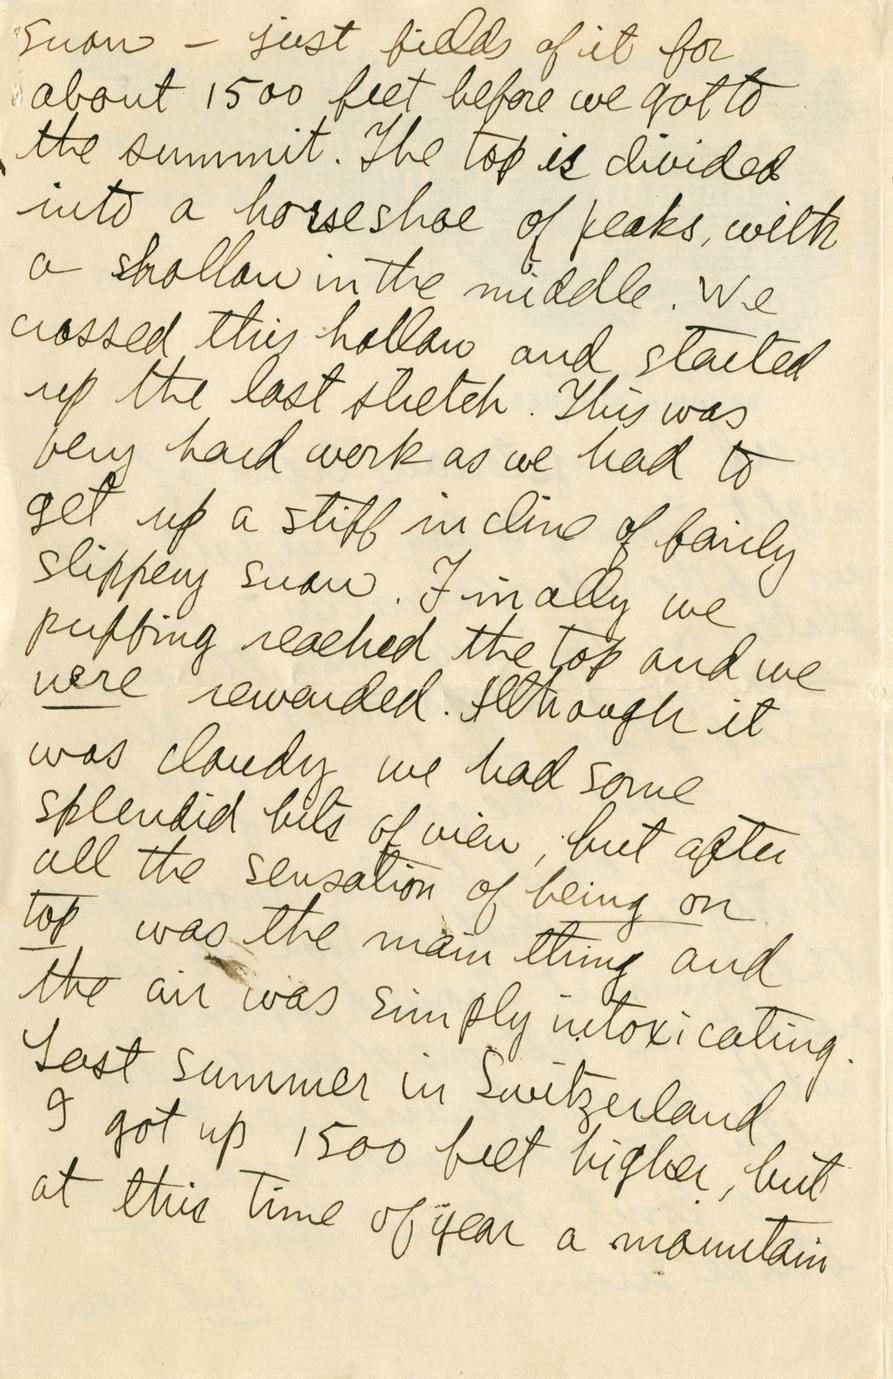 snow – just fields of it for
about 1500 feet before we got to
the summit. The top is divided
into a horseshoe of peaks, with
a shallow in the middle. We
crossed this hollow and started
up the last stretch. This was
very hard work as we had to
get up a stiff incline of fairly
slippery snow. Finally we
puffing reached the top and we
were rewarded. Although it
was cloudy we had some
splendid bits of view, but after
all the sensation of being on
top was the main thing and
the air was simply intoxicating.
Last summer in Switzerland
I got up 1500 feet higher, but
at this time of year a mountain